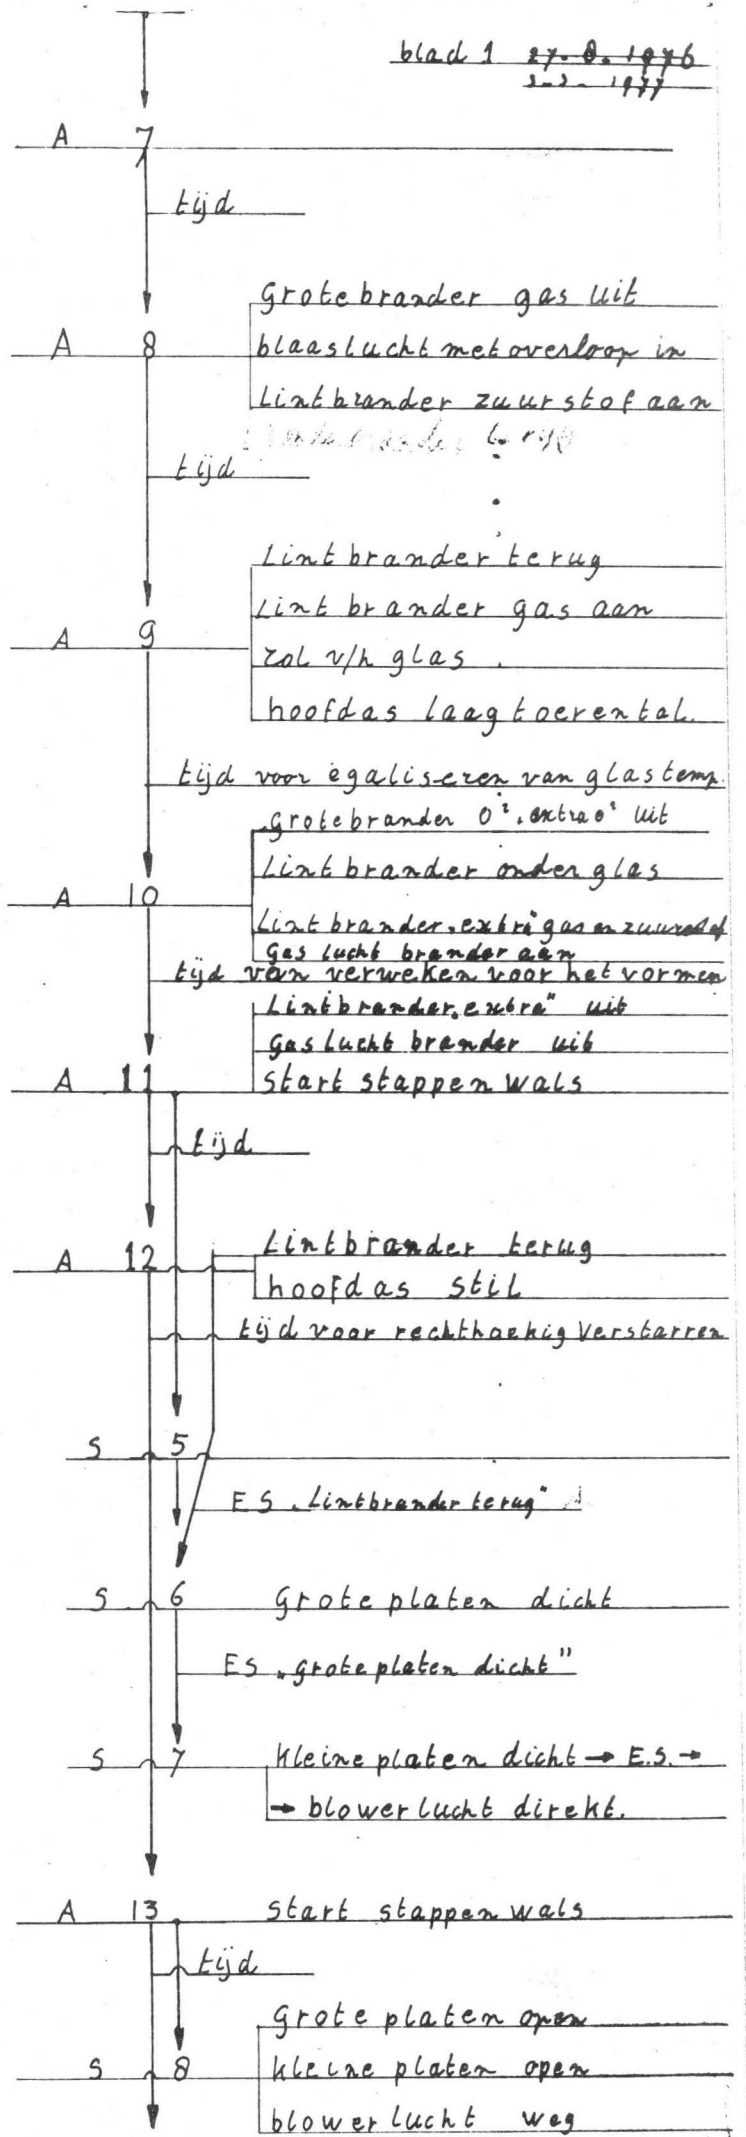 blad 1 27-8-1976
1977
A 7
tijd
Grote brander gas uit
A 8 blaaslucht met overloop in
Lintbrander zuurstof aan
tijd
Lintbrander terug
Lintbrander gas aan
A 9
rol v/h glas
hoofdas laag toerental
tijd voor egaliseren van glastemp.
Grotebrander O². extra O² uit
Lintbrander onder glas
A 10
Lintbrander „extra" gas en zuurstof
Gas lucht brander aan
tijd van verweken voor het vormen
Lintbrander „extra" uit
Gas lucht brander uit
A 11 Start stappen wals
tijd
Lintbrander terug
A 12
hoofdas stil
tijd voor rechthoekig Verstarren
S 5
ES „Lintbrander terug"
S 6 Grote platen dicht
ES „Grote platen dicht"
S 7 Kleine platen dicht → E.S. →
→ blower lucht direkt.
A 13 Start stappen wals
tijd
Grote platen open
S 8 Kleine platen open
blower lucht weg